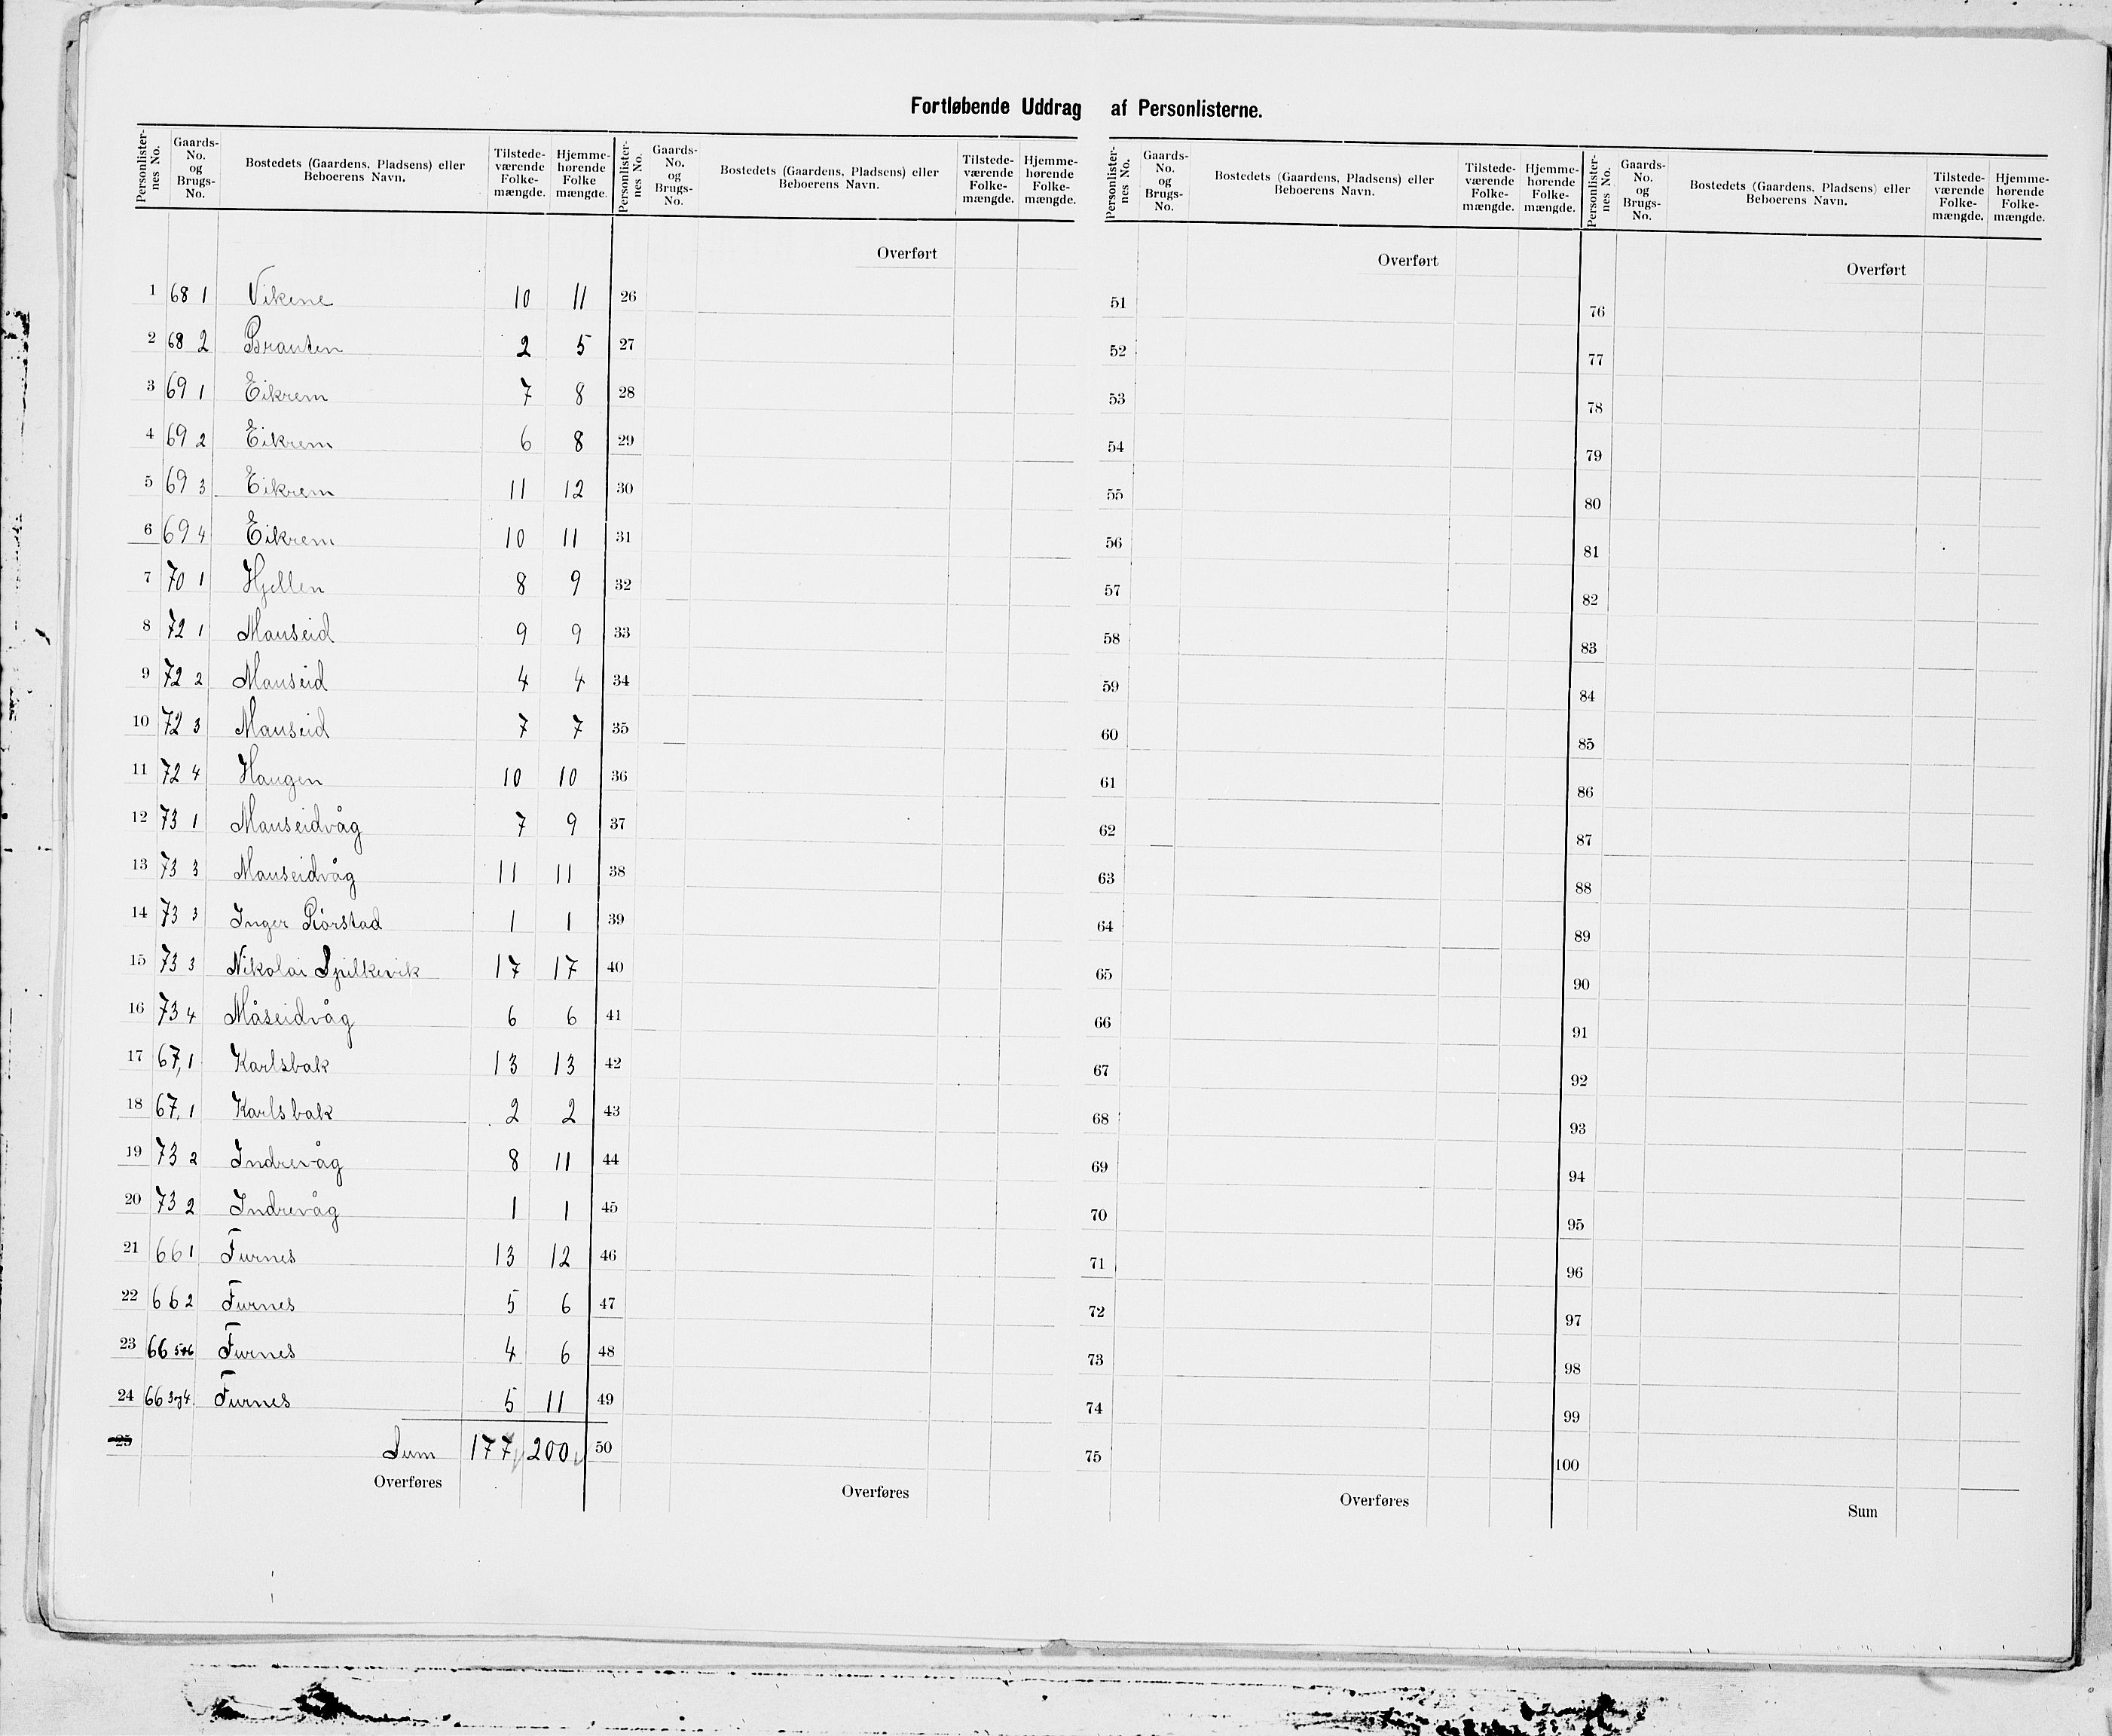 Fortløbende Uddrag af Personlisterne.
Personlister-nes No. Gaards-No. og Brugs-No. Bostedets (Gaardens, Pladsens) eller Beboerens Navn. Tilstede-værende Folke-mængde. Hjemme-hørende Folke mængde.
Personlister-nes No. Gaards-No. og Brugs-No. Bostedets (Gaardens, Pladsens) eller Beboerens Navn. Tilstede-værende Folke-mængde. Hjemme-hørende Folke-mængde.
Personlister-nes No. Gaards-No. og Brugs-No. Bostedets (Gaardens, Pladsens) eller Beboerens Navn. Tilstede-værende Folke-mængde. Hjemme-hørende Folke-mængde.
Personlister-nes No. Gaards-No. og Brugs-No. Bostedets (Gaardens, Pladsens) eller Beboerens Navn. Tilstede-værende Folke-mængde. Hjemme-hørende Folke-mængde.
Overført Overført Overført
1 68 1 Vikene 10 11 26 51 76
2 68 2 Brauten 2 5 27 52 77
3 69 1 Eikrem 7 8 28 53 78
4 69 2 Eikrem 6 8 29 54 79
5 69 3 Eikrem 11 12 30 55 80
6 69 4 Eikrem 10 11 31 56 81
7 70 1 Hjellen 8 9 32 57 82
8 72 1 Mauseid 9 9 33 58 83
9 72 2 Mauseid 4 4 34 59 84
10 72 3 Mauseid 7 7 35 60 85
11 72 4 Haugen 10 10 36 61 86
12 73 1 Mauseidvåg 7 9 37 62 87
13 73 3 Mauseidvåg 11 11 38 63 88
14 73 3 Inger Rörstad 1 1 39 64 89
15 73 3 Nikolai Spilkevik 17 17 40 65 90
16 73 4 Måseidvåg 6 6 41 66 91
17 67,1 Karlsbak 13 13 42 67 92
18 67,1 Karlsbak 2 2 43 68 93
19 73 2 Indrevåg 8 11 44 69 94
20 73 2 Indrevåg 1 1 45 70 95
21 66 1 Furnes 13 12 46 71 96
22 66 2 Furnes 5 6 47 72 97
23 66 5+6 Furnes 4 6 48 73 98
24 66 3og4 Furnes 5 11 49 74 99
25 Sum 177 200 50 75 100
Overføres Overføres Overføres Sum